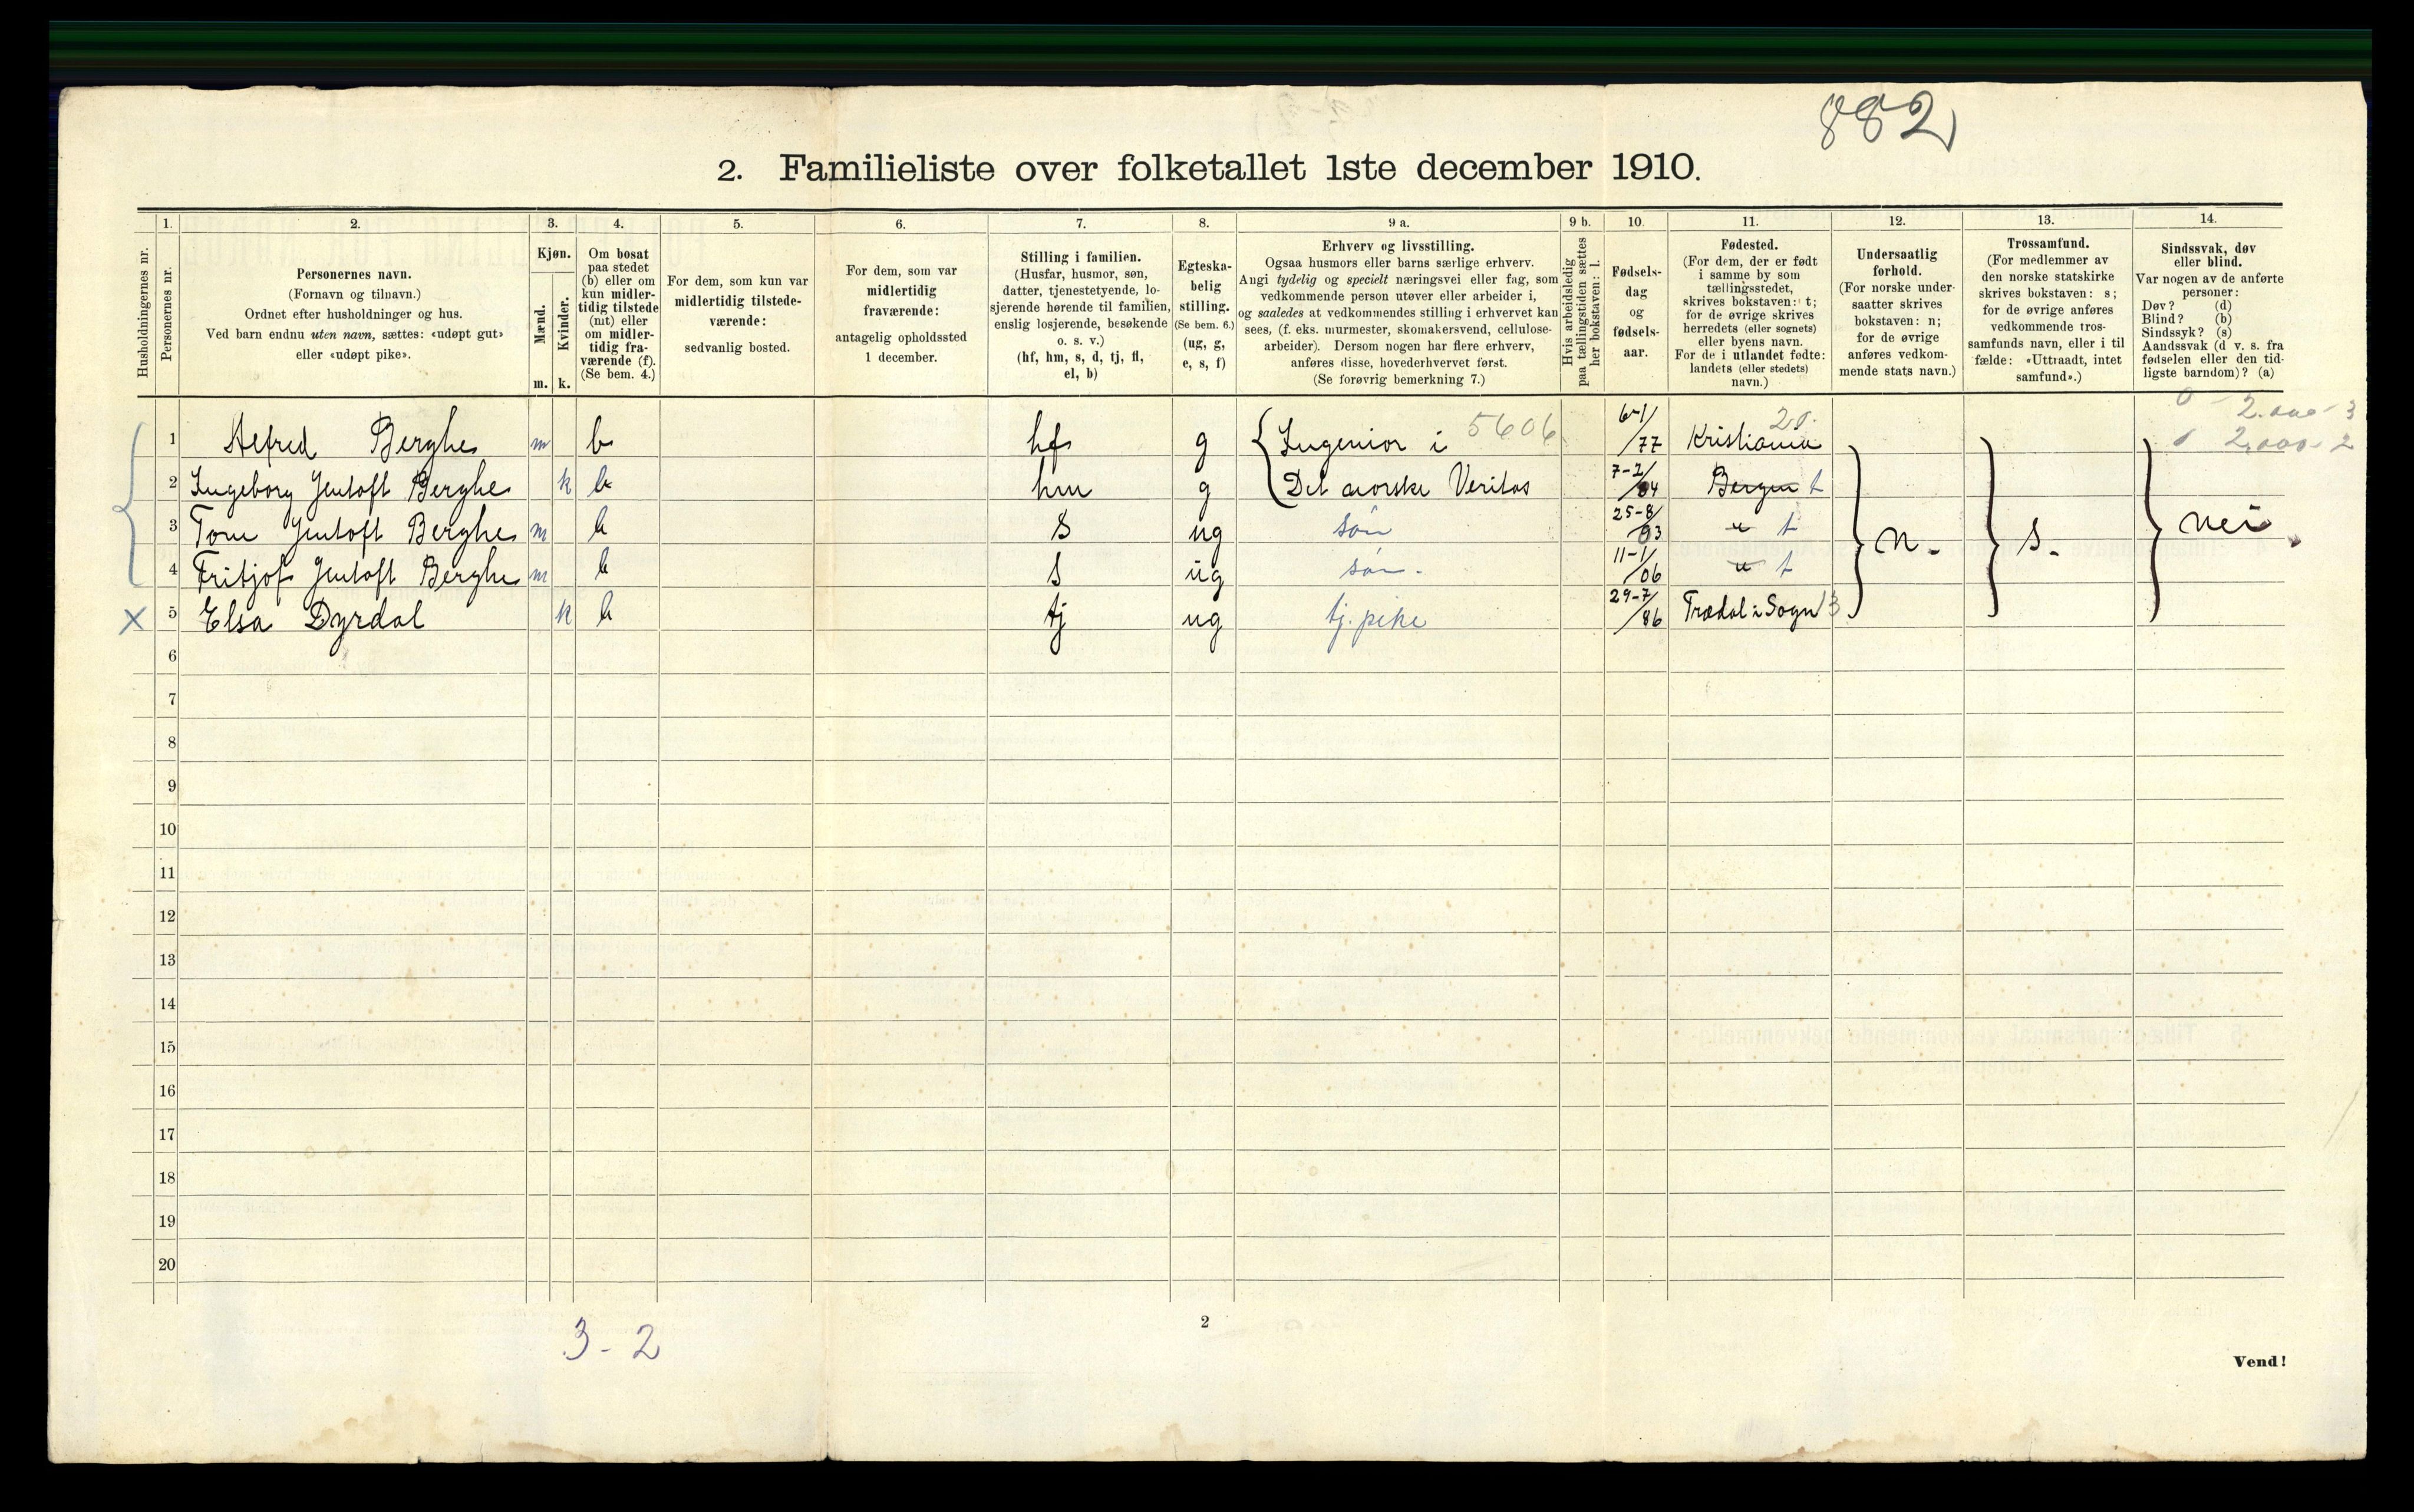 882
2. Familieliste over folketallet 1ste december 1910.
Husholdningernes nr.
1. Personernes nr.
2.
Personernes navn.
(Fornavn og tilnavn.)
Ordnet efter husholdninger og hus.
Ved barn endnu uten navn, sættes: «udøpt gut»
eller «udøpt pike».
3.
Kjøn.
Mænd. Kvinder.
m. k.
4.
Om bosat
paa stedet
(b) eller om
kun midler-
tidig tilstede
(mt) eller
om midler-
tidig fra-
værende (f).
(Se bem. 4.)
5.
For dem, som kun var
midlertidig tilstede-
værende:
sedvanlig bosted.
6.
For dem, som var
midlertidig
fraværende:
antagelig opholdssted
1 december.
7.
Stilling i familien.
(Husfar, husmor, søn,
datter, tjenestetyende, lo-
sjerende hørende til familien,
enslig losjerende, besøkende
o. s. v.)
(hf, hm, s, d, tj, fl,
el, b)
8.
Egteska-
belig
stilling.
(Se bem. 6.)
(ug, g,
e, s, f)
9 a.
Erhverv og livsstilling.
Ogsaa husmors eller barns særlige erhverv.
Angi tydelig og specielt næringsvei eller fag, som
vedkommende person utøver eller arbeider i,
og saaledes at vedkommendes stilling i erhvervet kan
sees, (f. eks. murmester, skomakersvend, cellulose-
arbeider). Dersom nogen har flere erhverv,
anføres disse, hovederhvervet først.
(Se forøvrig bemerkning 7.)
9 b.
Hvis arbeidsledig
paa tællingstiden sættes
her bokstaven: l.
10.
Fødsels-
dag
og
fødsels-
aar.
11.
Fødested.
(For dem, der er født
i samme by som
tællingsstedet,
skrives bokstaven: t;
for de øvrige skrives
herredets (eller sognets)
eller byens navn.
For de i utlandet fødte:
landets (eller stedets)
navn.)
12.
Undersaatlig
forhold.
(For norske under-
saatter skrives
bokstaven: n;
for de øvrige
anføres vedkom-
mende stats navn.)
13.
Trossamfund.
(For medlemmer av
den norske statskirke
skrives bokstaven: s;
for de øvrige anføres
vedkommende tros-
samfunds navn, eller i til
fælde: «Uttraadt, intet
samfund».)
14.
Sindssvak, døv
eller blind.
Var nogen av de anførte
personer:
Døv? (d)
Blind? (b)
Sindssyk? (s)
Aandssvak (d v. s. fra
fødselen eller den tid-
ligste barndom)? (a)
1 Alfred Berghe m b hf g Ingeniør i 5606 6-1/77 Kristiania 20.
2 Ingeborg Jentoft Berghe k b hm g Det norske Veritas 7-2/84 Bergen t
3 Tom Jentoft Berghe m b s ug søn 25-8/03 " t n. s. nei
4 Fritjof Jentoft Berghe m b s ug søn. 11-1/06 " t
X 5 Elsa Dyrdal k b tj ug tj. pike 29-7/86 Trædal i Sogn 13
6
7
8
9
10
11
12
13
14
15
16
17
18
19
20
3 - 2
2
Vend!